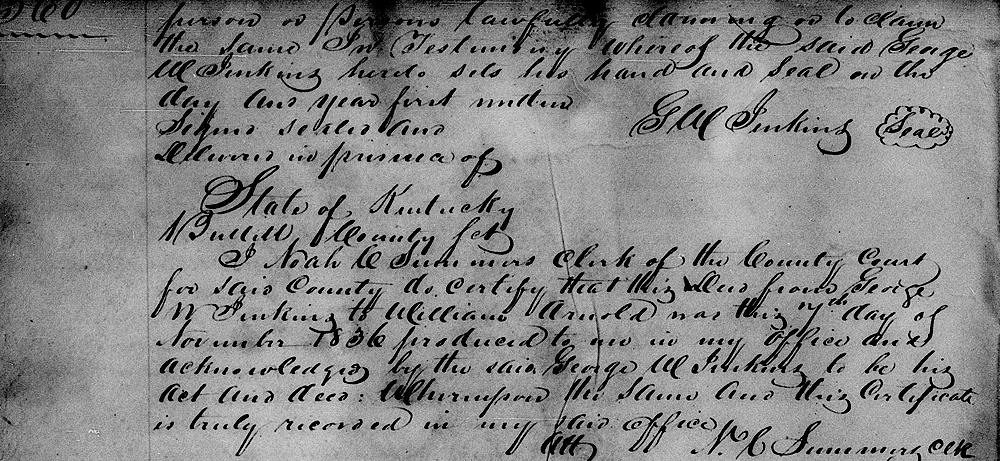 person or persons lawfully claiming or to claim
the same In Testimony whereof the said George
W Jenkins hereto sets his hand and seal on the
day and year first written
Signed sealed and G W Jenkins Seal
Delivered in presence of
State of Kentucky
Bullitt County Sct
I Noah C Summers Clerk of the County Court
for said County do certify that this Deed from George
W Jenkins to William Arnold was this 7th day of
November 1836 produced to me in my office and
acknowledged by the said George W Jenkins to be his
act and deed: Whereupon the same and this Certificate
is truly recorded in my said office
Att N. C Summers Clk